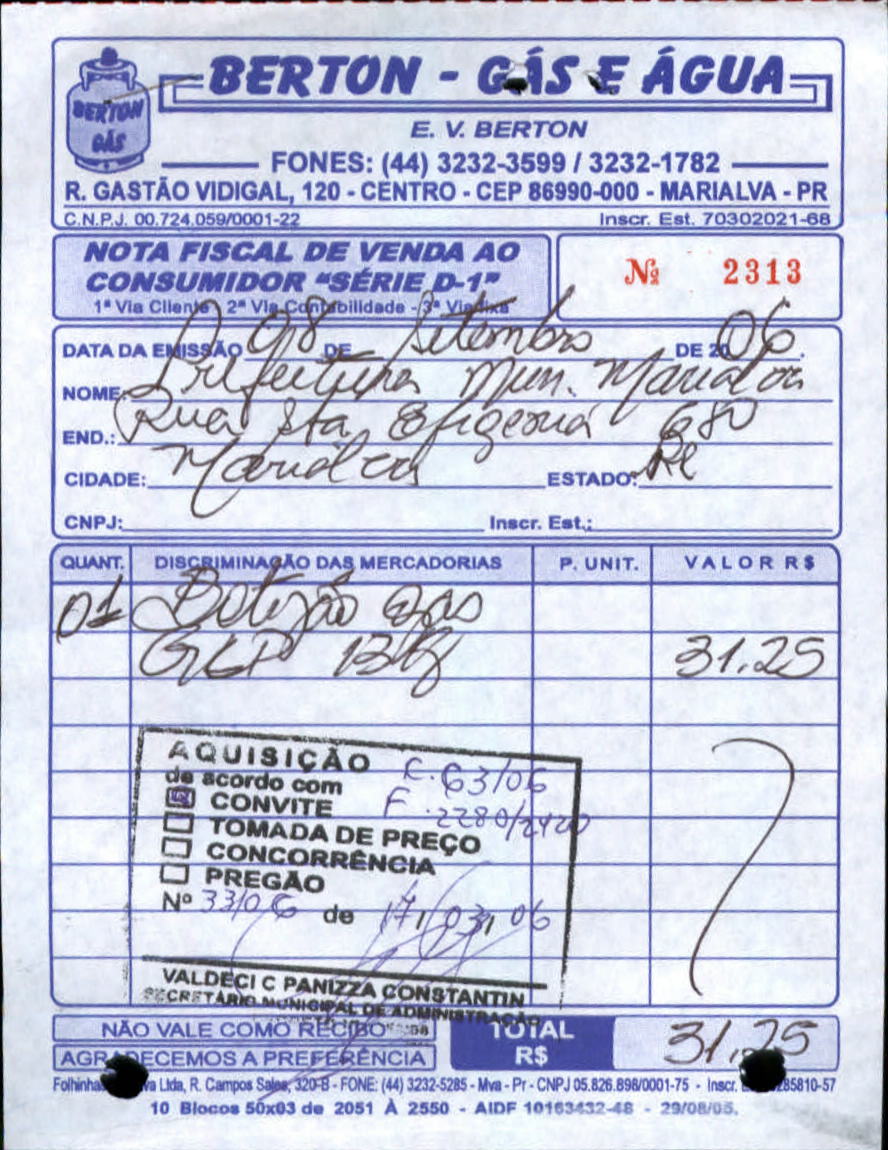 BERTON - GÁS E ÁGUA
BERTON
GÁS
E. V. BERTON
FONES: (44) 3232-3599 / 3232-1782
R. GASTÃO VIDIGAL, 120 - CENTRO - CEP 86990-000 - MARIALVA - PR
C.N.P.J. 00.724.059/0001-22 Inscr. Est. 70302021-68
NOTA FISCAL DE VENDA AO
CONSUMIDOR "SÉRIE D-1"
Nº 2313
1ª Via Cliente 2ª Via Contabilidade - 3ª Via Fixa
DATA DA EMISSÃO 08 DE Setembro DE 2006.
NOME: Prefeitura Mun. Marialva
END.: Rua Sta Efigenia 680
CIDADE: Marialva ESTADO: Pr
CNPJ: Inscr. Est.:
QUANT. DISCRIMINAÇÃO DAS MERCADORIAS P. UNIT. VALOR R$
01 Botijão Gás
GLP 13K 31.25
AQUISIÇÃO
de acordo com C. 63/06
CONVITE F. 2280/2420
TOMADA DE PREÇO
CONCORRÊNCIA
PREGÃO
Nº 33/06 de 17/03/06
VALDECI C PANIZZA CONSTANTIN
SECRETÁRIO MUNICIPAL DE ADMINISTRAÇÃO
NÃO VALE COMO RECIBO
AGRADECEMOS A PREFERÊNCIA
TOTAL
R$ 31,25
Ltda, R. Campos Sales, 320-B - FONE: (44) 3232-5285 - Mva - Pr - CNPJ 05.826.898/0001-75 - Inscr.
10 Blocos 50x03 de 2051 À 2550 - AIDF 10163432-48 - 29/08/05.